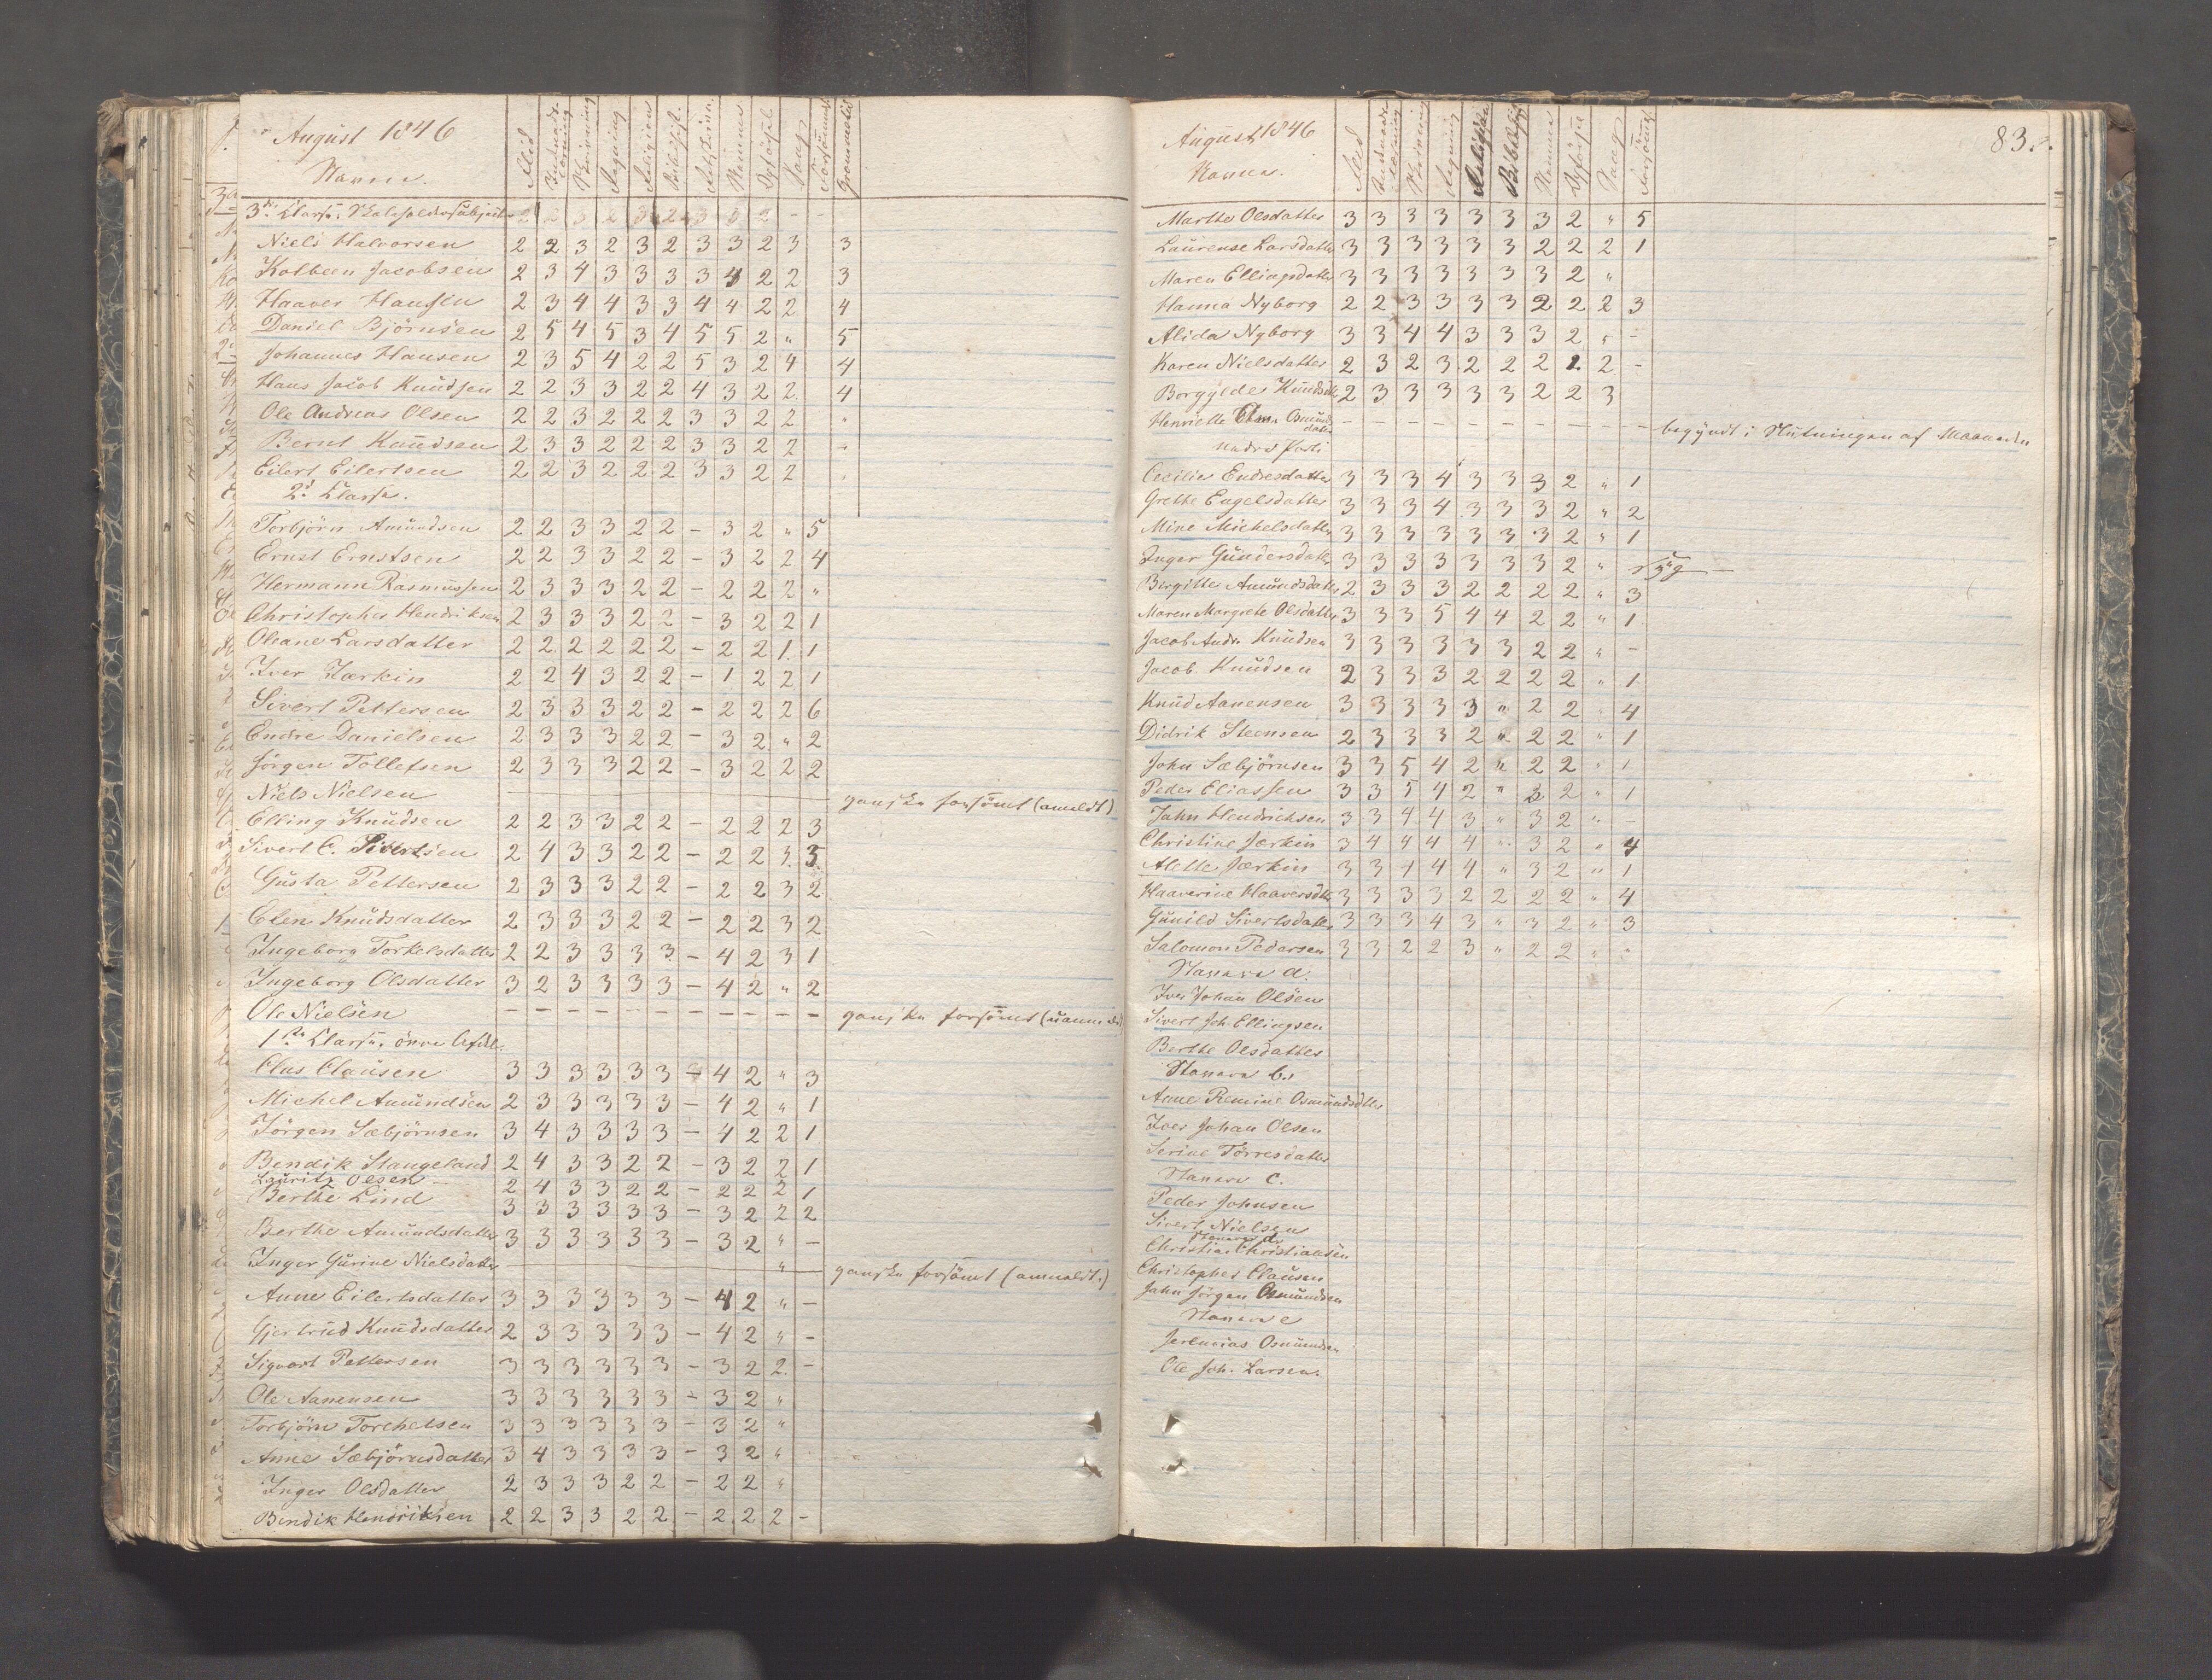 August 1846
Navne.
Flid
Indenads-
læsning
Skrivning
Regning
Religion
Bibelhist.
Retskrivn.
Nemme
Opførsel
Sang
Forsømmelser
Grammatik
3die Classe.
Niels Halvorsen 2 2 3 2 3 2 3 3 2 3 3
Kolbeen Jacobsen 2 3 4 3 3 3 3 4 2 2 3
Haaver Hansen 2 3 4 4 3 3 4 4 2 2 4
Daniel Björnsen 2 5 4 5 3 4 5 5 2 " 5
Johannes Hansen 2 3 5 4 2 2 5 3 2 4 4
Hans Jacob Knudsen 2 2 3 3 2 2 4 3 2 2 4
Ole Andreas Olsen 2 2 3 2 2 2 3 3 2 2 "
Bernt Knudsen 2 3 3 2 2 2 3 3 2 2 -
Eilert Eilertsen 2 2 3 2 2 2 3 3 2 2 "
2d Classe.
Torbjörn Amundsen 2 2 3 3 2 2 - 3 2 " 5
Ernst Ernstsen 2 2 3 3 2 2 - 3 2 2 4
Hermann Rasmussen 2 3 3 3 2 2 - 2 2 2 "
Christopher Hendriksen 2 3 3 3 2 2 - 3 2 2 1
Oleane Larsdatter 2 2 2 2 2 2 - 2 2 1 1
Iver Jærkin 2 2 4 3 2 2 - 1 2 2 1
Sivert Pettersen 2 3 3 3 2 2 - 2 2 2 6
Endre Danielsen 2 3 3 3 2 2 - 3 2 " 2
Jörgen Tollefsen 2 3 3 3 2 2 - 3 2 2 2
Niels Nielsen ganske forsömt (anmeldt)
Elling Knudsen 2 2 3 3 2 2 - 2 2 2 3
Sivert C. Sivertsen 2 4 3 3 2 2 - 2 2 3 5
Gusta Pettersen 2 3 3 3 2 2 - 2 2 3 2
Elen Knudsdatter 2 3 3 3 2 2 - 2 2 3 2
Ingeborg Torkelsdatter 2 2 3 3 3 3 - 4 2 3 1
Ingeborg Olsdatter 3 2 3 3 3 3 - 4 2 " 2
Ole Nielsen - - - - - - - - - - - ganske forsömt (uanmeldt)
1ste Classe. övre Afdel.
Claus Clausen 3 3 3 3 3 3 - 4 2 " 3
Michel Amundsen 2 3 3 3 3 3 - 4 2 " 1
Jörgen Sæbjörnsen 3 4 3 3 3 3 - 4 2 2 1
Bendik Stangeland 2 4 3 3 2 2 - 3 2 2 1
Lauritz Olsen 2 4 3 3 2 2 - 2 2 2 1
Berthe Lind 3 3 3 3 3 3 - 3 2 2 2
Berthe Amundsdatter 3 3 3 3 3 3 - 3 2 " -
Inger Gurine Nielsdatter " ganske forsömt (anmeldt.)
Anne Eilertsdatter 3 3 3 3 3 3 - 4 2 " -
Gjertrud Knudsdatter 2 3 3 3 3 3 - 4 2 " -
Sigvart Pettersen 3 3 3 3 3 3 - 3 2 2 -
Ole Aanensen 3 3 3 3 3 3 - 3 2 "
Torbjörn Torchelsen 3 3 3 3 3 3 - 3 2 "
Anne Sæbjörnsdatter 3 4 3 3 3 3 - 3 2 "
Inger Olsdatter 2 3 3 3 2 2 - 2 2 "
Bendik Hendriksen 2 2 3 3 2 2 - 2 2 2 -
August 1846
Navne.
Flid
Indenads-
læsning
Skrivning
Regning
Religion
Bibelhist
Nemme
Opførsel
Sang
Forsömmelser
83.
Marthe Olsdatter 3 3 3 3 3 3 3 2 " 5
Laurense Larsdatter 3 3 3 3 3 3 2 2 2 1
Maren Ellingsdatter 3 3 3 3 3 3 3 2 "
Hanna Nyborg 2 2 3 3 3 3 2 2 2 3
Alida Nyborg 3 3 4 4 3 3 3 2 " -
Karen Nielsdatter 2 3 2 3 2 2 2 2 2 -
Borgylde Knudsdtr 2 3 3 3 3 3 2 2 3
Henriette Osmunds-
datter - - - - - - - - - - - begyndt i Slutningen af Maaneden
nedre Parti
Cecilie Endresdatter 3 3 3 4 3 3 3 2 " 1
Grethe Engelsdatter 3 3 3 4 3 3 3 2 " 2
Mine Michelsdatter 3 3 3 3 3 3 3 2 " 1
Inger Gundersdatter 3 3 3 3 3 3 3 2 " syg
Bergitte Amundsdatter 2 3 3 3 2 2 2 2 " 3
Maren Margrete Olsdatter 3 3 3 5 4 4 2 2 " 1
Jacob Andr. Knudsen 3 3 3 3 3 3 2 2 " -
Jacob Knudsen 2 3 3 3 2 2 2 2 " 1
Knud Aanensen 3 3 3 3 3 " 2 2 " 4
Didrik Steensen 2 3 3 3 2 " 2 2 " 1
John Sæbjörnsen 3 3 5 4 2 " 2 2 " 1
Peder Eliassen 3 3 5 4 2 " 3 2 " 1
Jahn Hendrichsen 3 3 4 4 3 " 3 2 " -
Christine Jærkin 3 4 4 4 4 " 3 2 " 4
Alette Jærkin 3 3 4 4 4 " 3 2 " 1
Haaverine Haaversdtr 3 3 3 3 2 2 2 2 " 4
Gunild Sivertsdatter 3 3 3 4 3 " 3 2 " 3
Salomon Pedersen 3 3 2 2 3 " 2 2 " "
Stavere a.
Iver Johan Olsen
Sivert Joh. Ellingsen
Berthe Olsdatter
Stavere b.
Anne Remine Osmundsdtter
Iver Johan Olsen
Serine Törresdatter
Stavere C.
Peder Johnsen
Sivert Nielsen
Stavere d.
Christian Christiansen
Christopher Clausen
Jahn Jörgen Osmundsen
Stavere e
Jeremias Osmundsen
Ole Joh. Larsen.